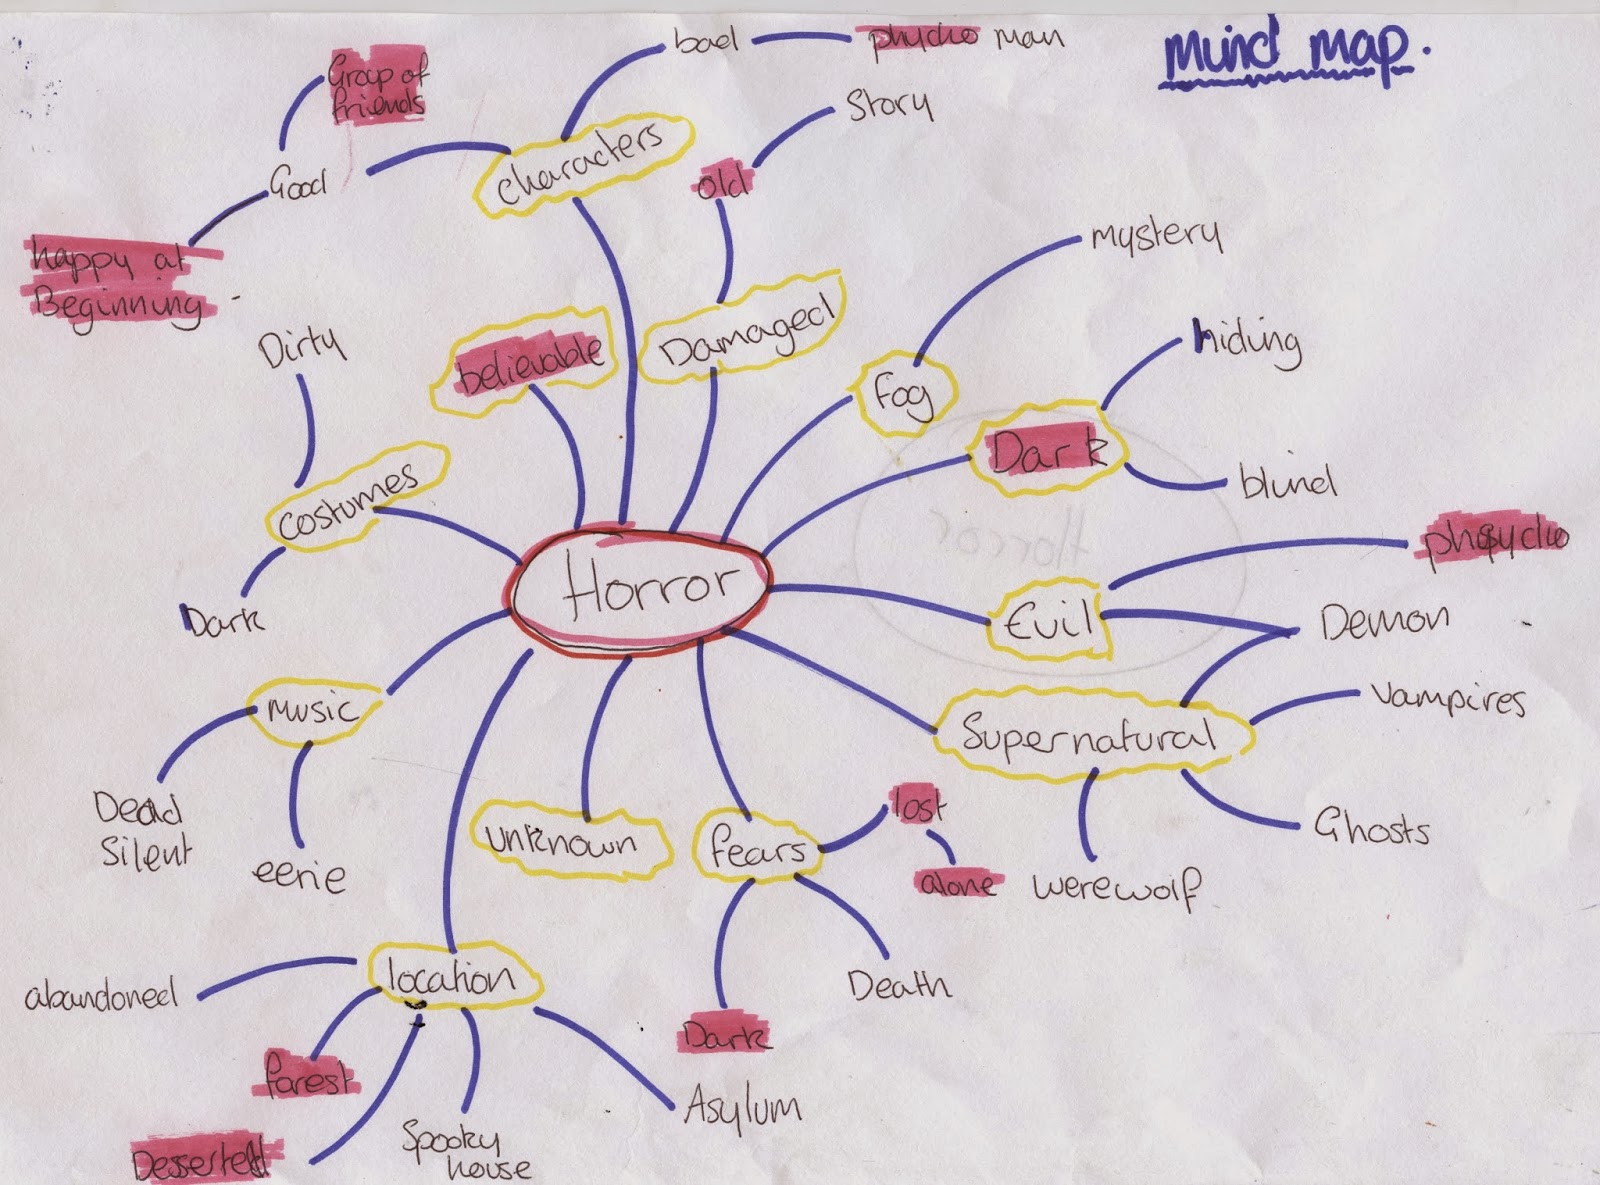 Mind map.
bad
phycho man
Group of
friends
Story
characters
old
Good
mystery
happy at
Beginning
Damaged
hiding
Dirty
believable
Fog
Dark
blind
costumes
phsycho
Horror
Horror
Dark
Evil
Demon
Music
Vampires
Supernatural
Dead
Silent
eerie
unknown
fears
lost
alone
Ghosts
werewolf
location
abandoned
Death
Dark
forest
Asylum
Spooky
house
Desserted